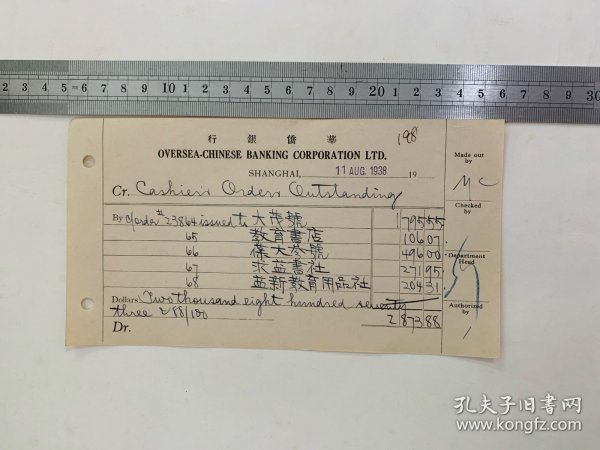 2 3 4 5 6 7 8 9 10 1 2 3 4 5 6 7 8 9 20 1 2 3 4 5 6 7 8 9 30
行 銀 僑 華
198
OVERSEA-CHINESE BANKING CORPORATION LTD.
SHANGHAI, 11 AUG. 1938 19
Cr. Cashier's Orders Outstanding
By C/order #23864 issued to 大茂號 1795.55
65 教育書店 106.07
66 葆大參號 496.00
67 求益書社 271.95
68 益新教育用品社 204.31
Dollars Two thousand eight hundred seventy
three & 88/100
Dr. 2873.88
Made out
by
MC
Checked
by
Department
Head
Authorized
by
孔夫子旧书网
www.kongfz.com